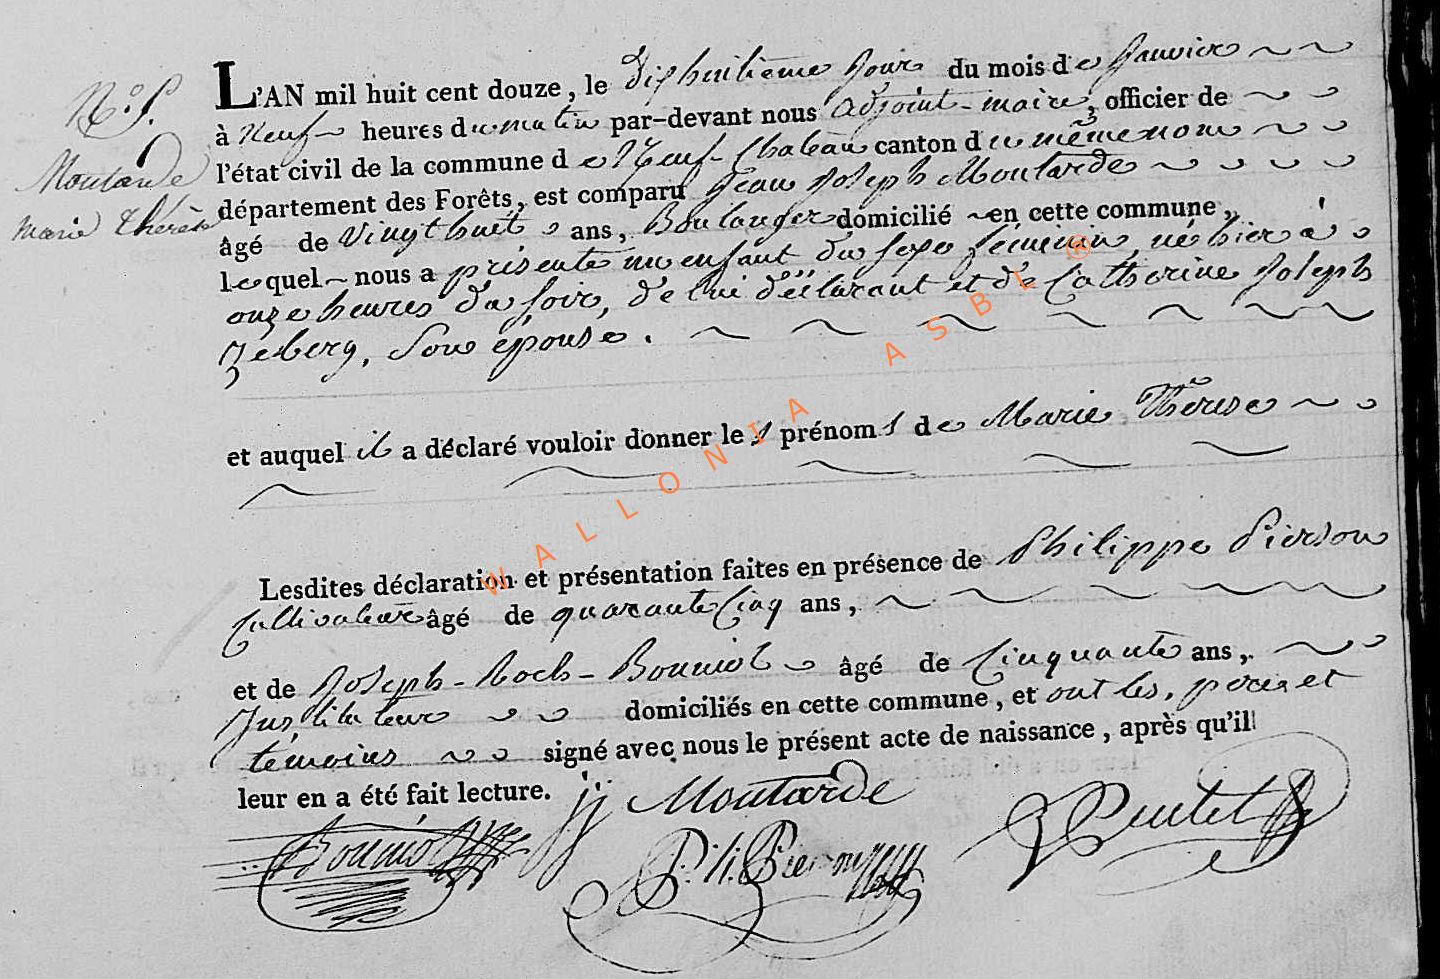 N.° 5.
Moutarde
marie thérèse
L'AN mil huit cent douze, le dixhuitième jour du mois de Janvier
à Neuf heures du matin par-devant nous adjoint-maire, officier de
l'état civil de la commune de Neuf-Chateau canton du même nom
département des Forêts, est comparu Jean Joseph Moutarde
âgé de vingt huit ans, Boulanger domicilié en cette commune,
lequel nous a présenté un enfant du sexe féminin, né hier à
onze heures du soir, de lui déclarant et de Catherine Joseph
, Son épouse.
et auquel il a déclaré vouloir donner les prénoms de Marie Thérese
Lesdites déclaration et présentation faites en présence de Philippe Pierson
Cultivateur âgé de quarante Cinq ans,
et de Joseph-Roch-Bouniol âgé de Cinquante ans,
Instituteur domiciliés en cette commune, et ont les, père et
témoins signé avec nous le présent acte de naissance, après qu'il
leur en a été fait lecture. jj Moutarde
Bouniol P:h: Pierson
WALLONIA ASBL ®